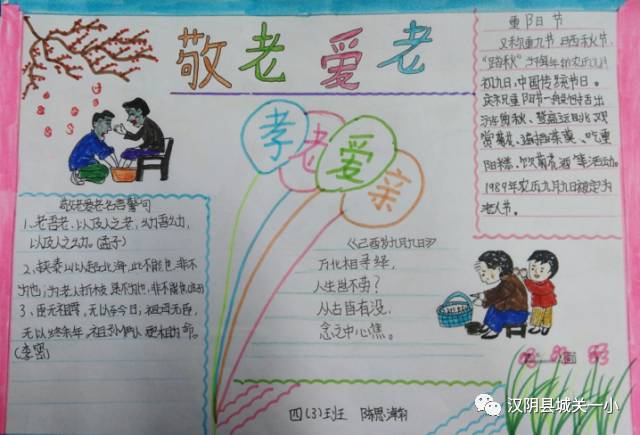 敬老爱老
重阳日节
又称重九节、晒秋节、
"踏秋",中国传统节日。
初九日,中国传统节日。
庆祝重阳节一般包括出
游赏秋、登高远眺、观
赏菊花、遍插茱萸、吃重
阳糕、饮菊花酒等活动。
1989年农历九月九日被定为
老人节。
孝老爱亲
敬老爱老名言警句
1、老吾老,以及人之老,幼吾幼,
以及人之幼。(孟子)
2、挟泰山以超北海,此不能也,非不
为也;为老人折枝,是不为也,非不能也
3、臣无祖母,无以至今日,祖母无臣,
无以终余年,祖孙俩人更相为命。
(李密)
《己酉岁九月九日》
万化相寻绎,
人生岂不劳?
从古皆有没,
念之中心焦。
四(3)班 陈思瀚
汉阴县城关一小